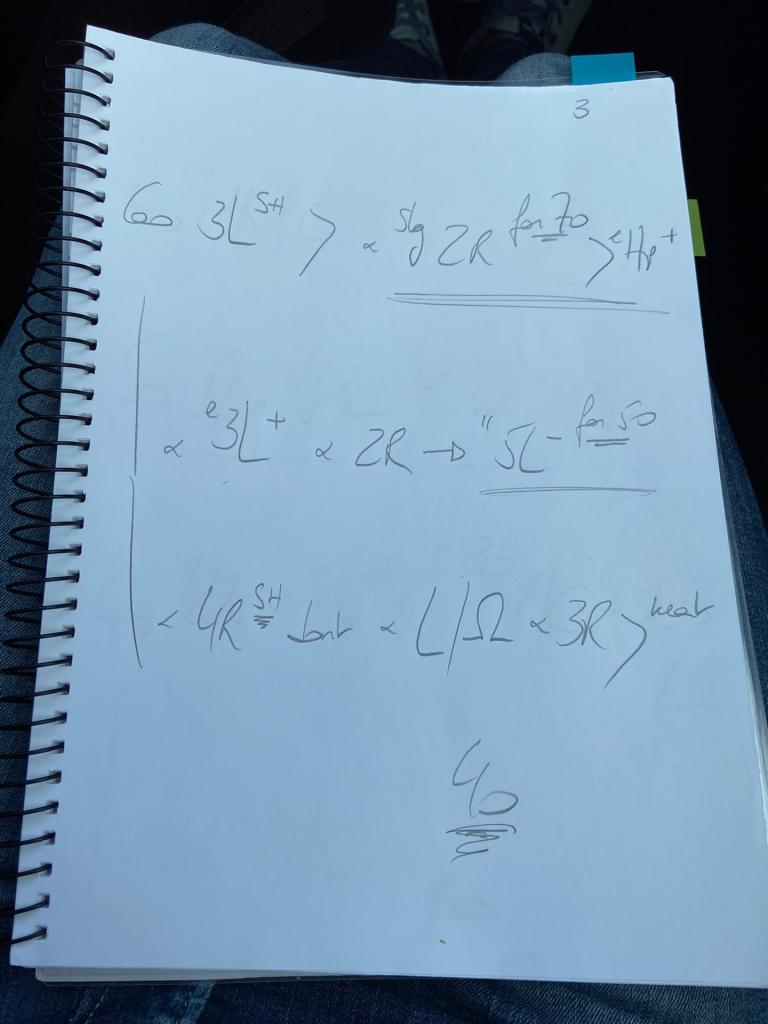 3
60 3L SH > ∝ slg 2R for 70 > e Hp +
∝ e 3L + ∝ 2R → " 5L - for 50
< 4R SH ∝ L/Ω ∝ 3R >
40